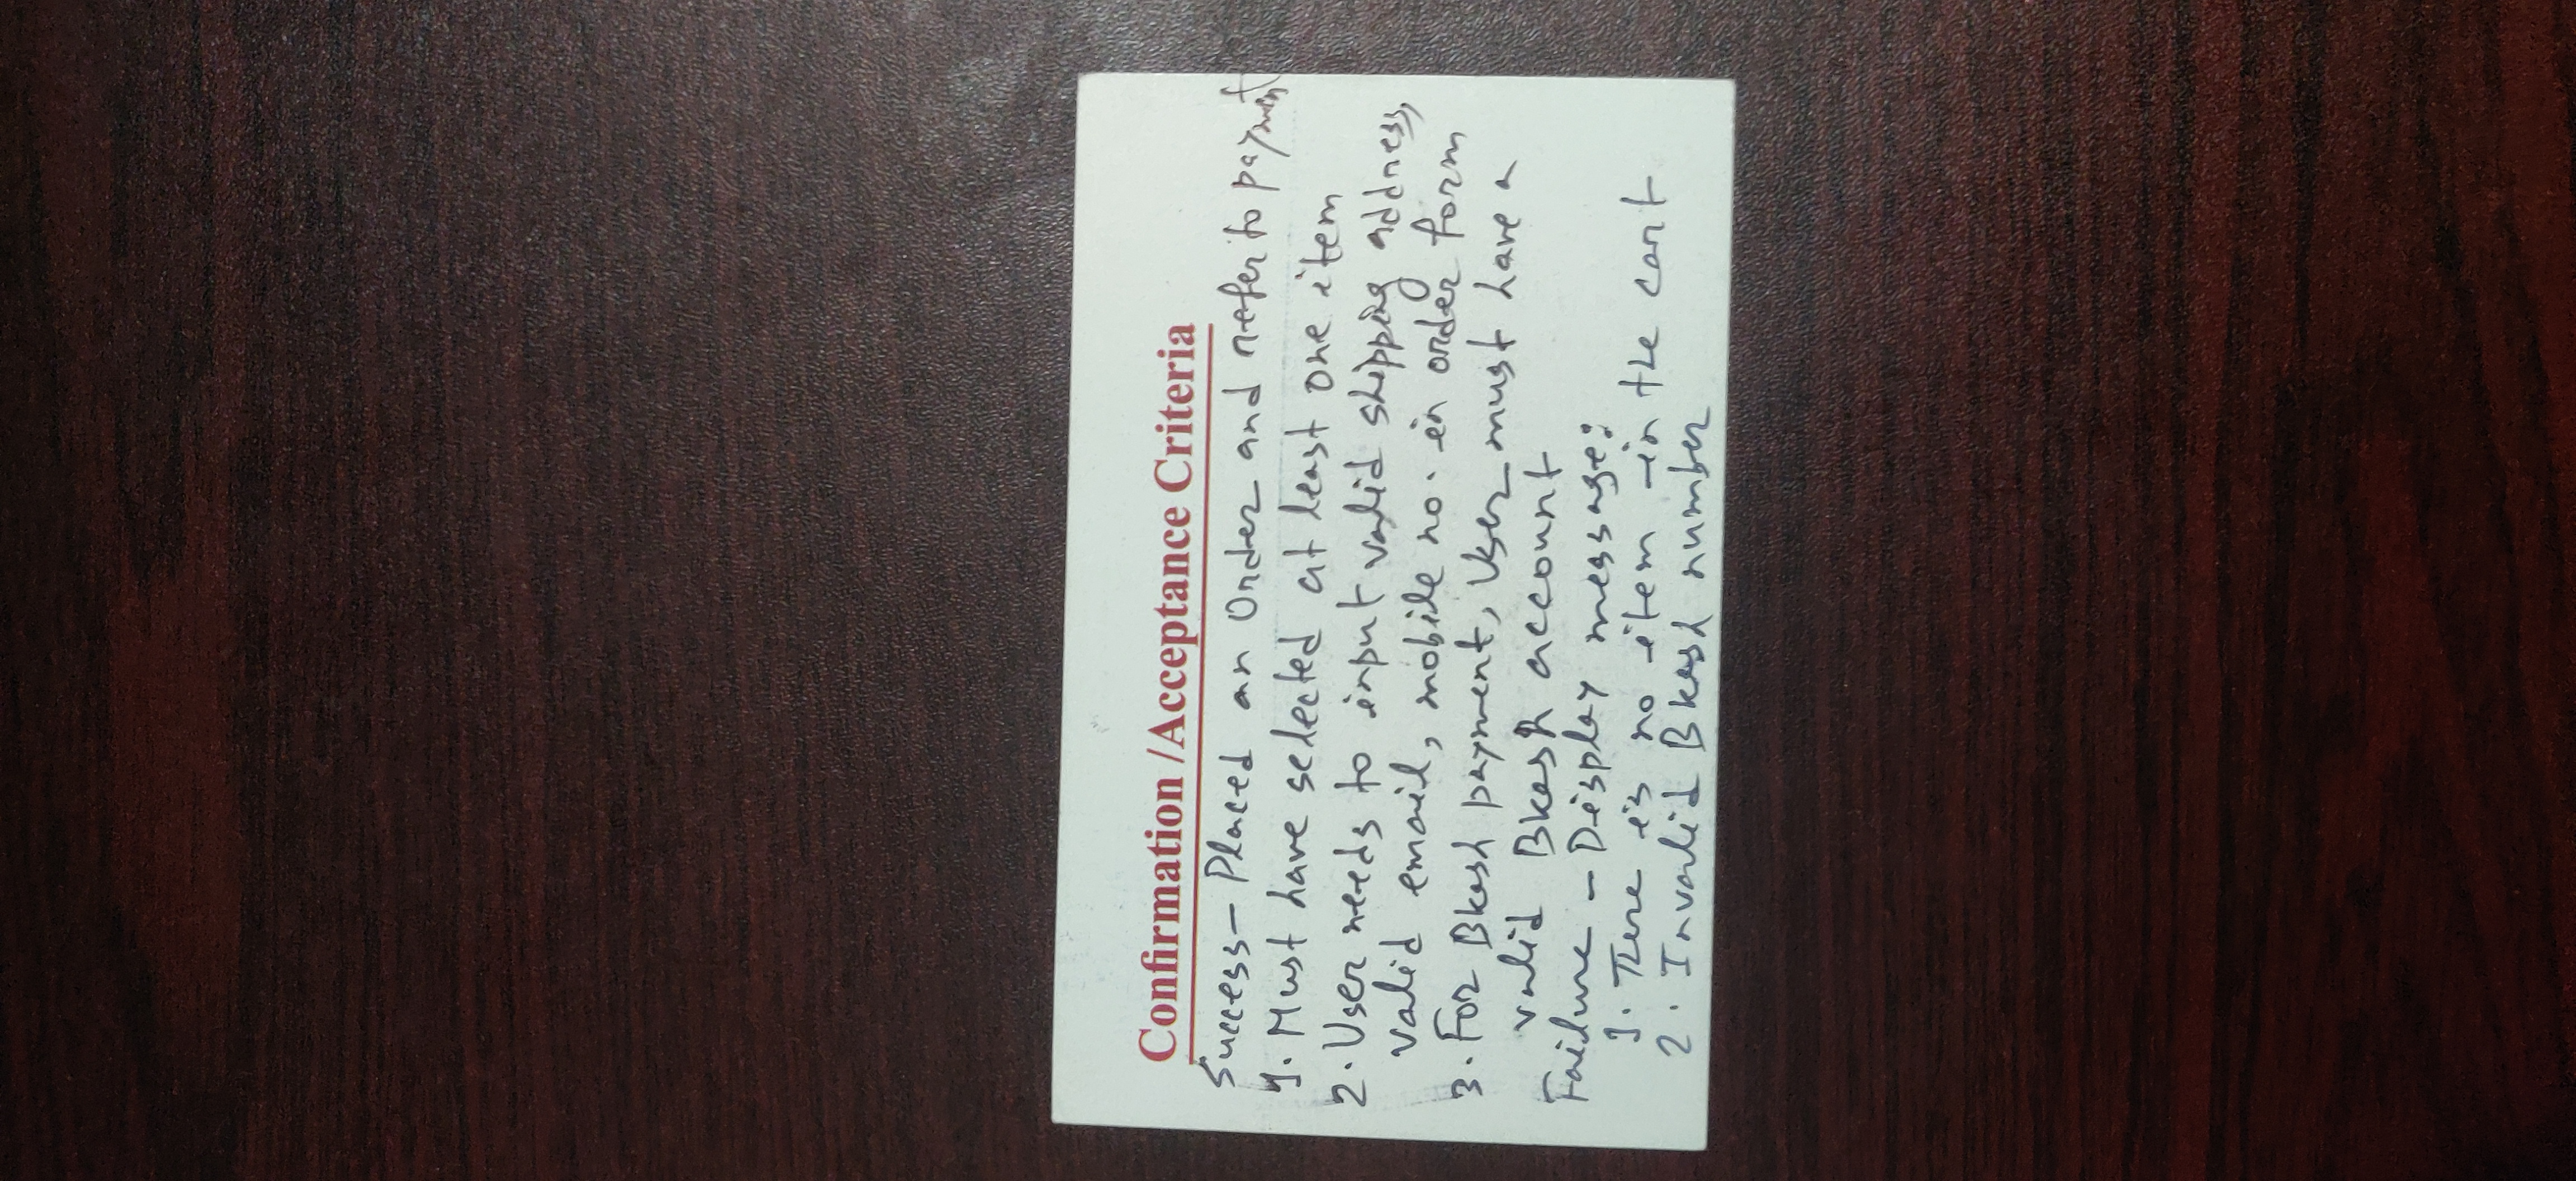 Confirmation /Acceptance Criteria
Success - Placed an Order and refer to payment
1. Must have selected at least one item
2. User needs to input valid shipping address,
valid email, mobile no. in order form
3. For Bkash payment, User must have a
valid Bkash account
Failure - Display message:
1. There is no item in the cart
2. Invalid Bkash number